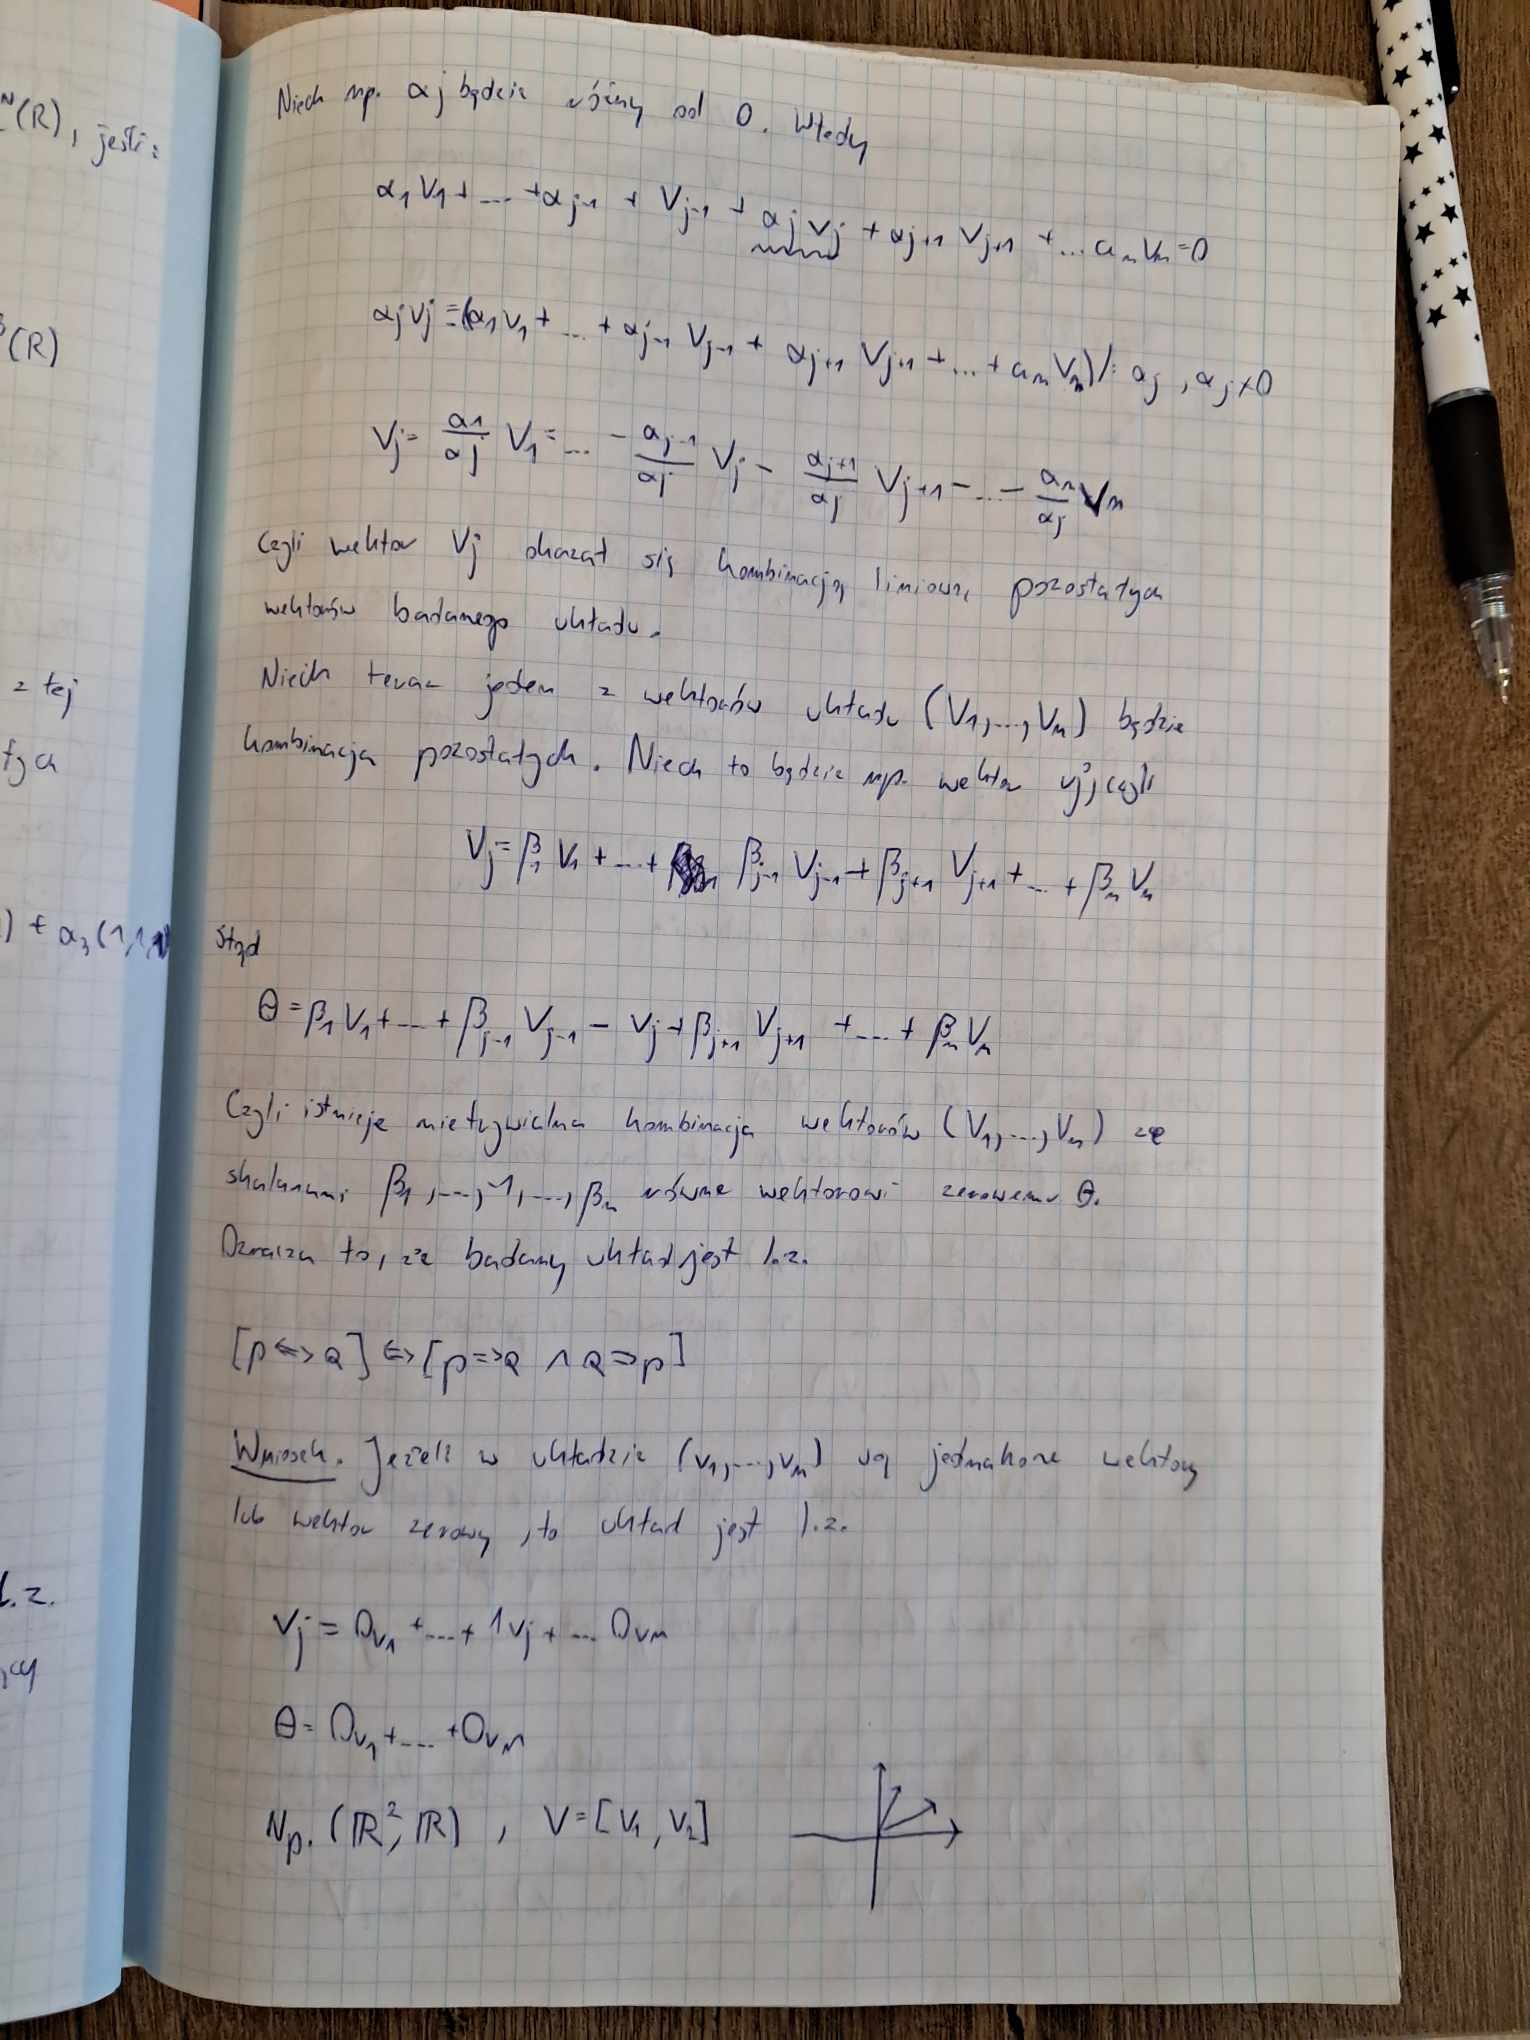 ᴺ(R), jeśli:
³(R)
z tej
tych
) + α₃(1,1,1)
l.z.
Niech np. αj będzie różny od 0. Wtedy
α₁V₁+...+αj-1 + Vj-1 + αjVj + αj+1 Vj+1 +...αnVn=0
αjVj=-(α₁V₁+...+αj-1 Vj-1 + αj+1 Vj+1 +...+αnVn)/: αj, αj≠0
Vj= α1/αj V₁=... - αj-1/αj Vj - αj+1/αj Vj+1 -...- αn/αj Vn
Czyli wektor Vj okazał się kombinacją liniową pozostałych
wektorów badanego układu.
Niech teraz jeden z wektorów układu (V₁,...,Vn) będzie
kombinacja pozostałych. Niech to będzie np. wektor vj, czyli
Vj=β₁V₁+...+ βj-1 Vj-1+βj+1 Vj+1+...+βnVn
Stąd
θ=β₁V₁+...+βj-1 Vj-1 - Vj+βj+1 Vj+1 +...+ βnVn
Czyli istnieje nietrywialna kombinacja wektorów (V₁,...,Vn) ze
skalarami β₁,...,-1,...,βn równa wektorowi zerowemu θ.
Oznacza to, że badany układ jest l.z.
[p<=>Q]<=>[p=>Q ∧ Q=>p]
Wniosek. Jeżeli w układzie (v₁,...,vn) są jednakowe wektory
lub wektor zerowy, to układ jest l.z.
Vj = 0v₁+...+1vj+...0vn
θ=0v₁+...+0vn
Np. (ℝ²,ℝ), V=[V₁,V₂]